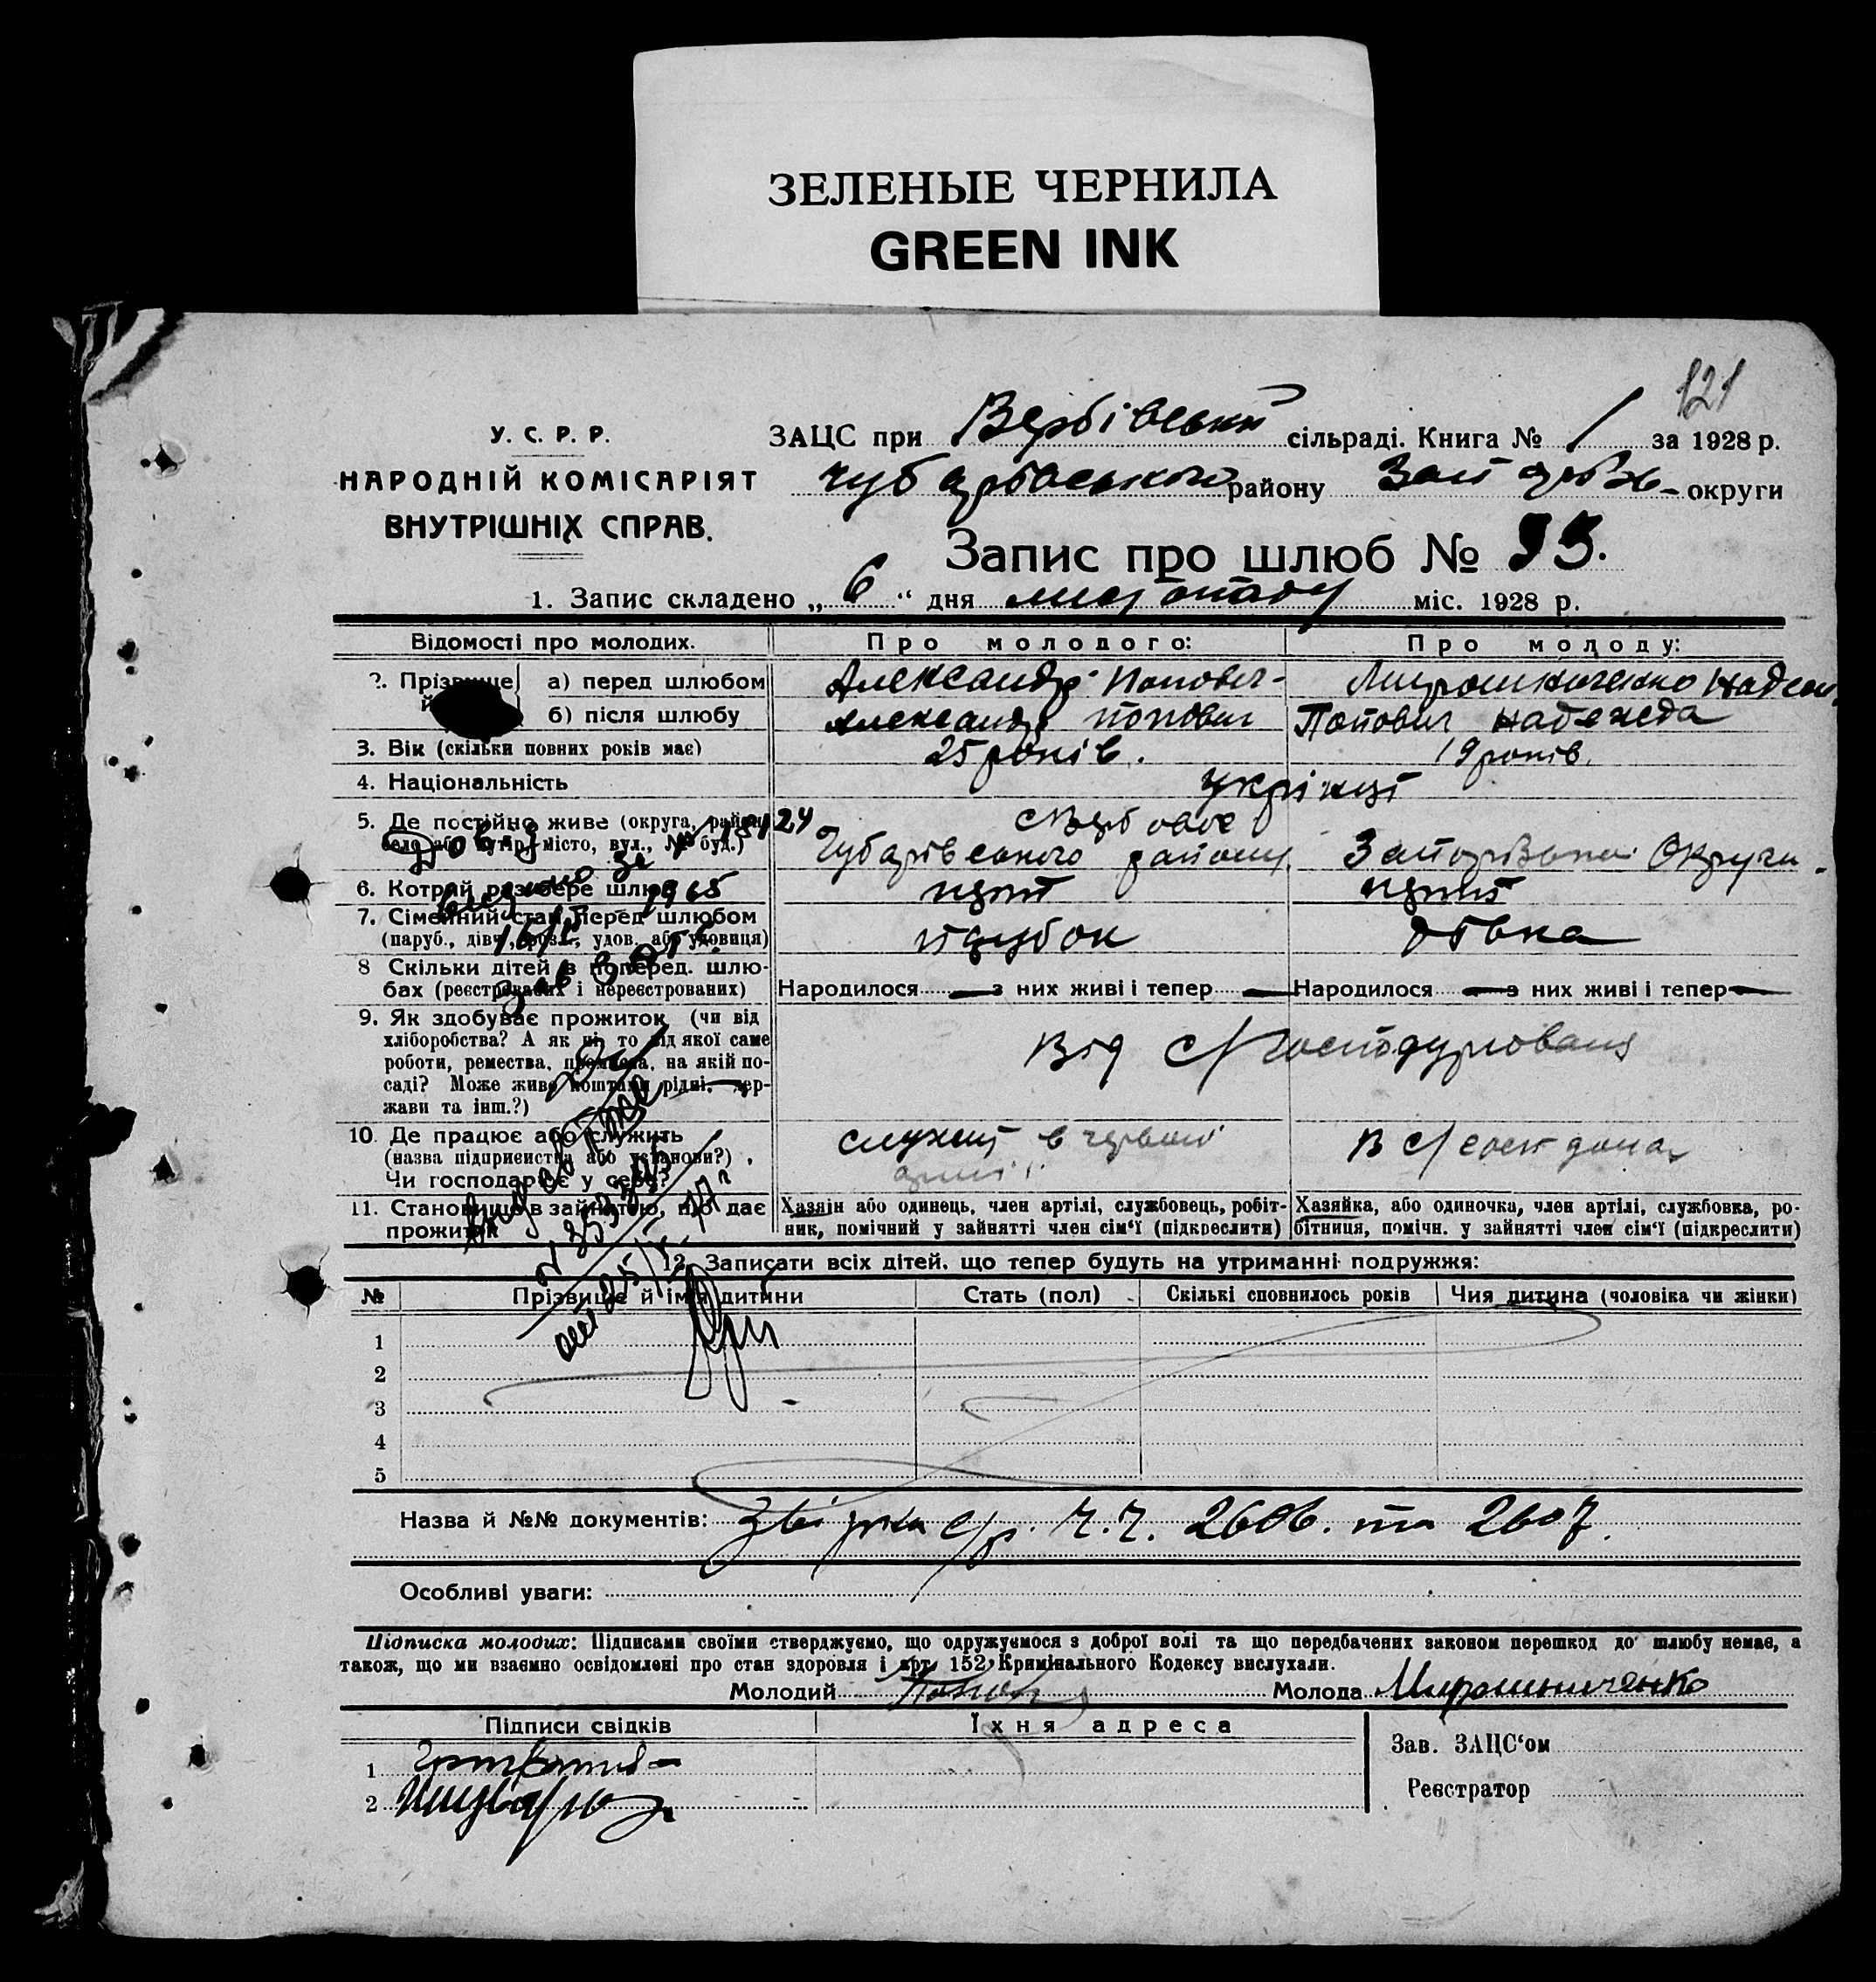 ЗЕЛЕНЫЕ ЧЕРНИЛА
GREEN INK
121
У. С. Р. Р.
НАРОДНІЙ КОМІСАРІЯТ
ВНУТРІШНІХ СПРАВ.
ЗАЦС при Вербівській сільраді. Книга № 1 за 1928 р.
Чубарівського району округи
Запис про шлюб № 93.
1. Запис складено „ 6 “ дня листопаду міс. 1928 р.
Відомості про молодих.
Про молодого:
Про молоду:
2. Прізвище
а) перед шлюбом Александр Попович Мирошниченко
б) після шлюбу Александр Попович Попович Надежда
3. Вік (скільки повних років має) 25 років. 19 років.
4. Національність українці
5. Де постійно живе (округа, район,
село або хутір, місто, вул., № буд.) Чубарівського району Запорізької Округи.
6. Котрий раз бере шлюб
7. Сімейний стан перед шлюбом
(паруб., дівч., розл., удов. або удовиця) парубок дівка
8 Скільки дітей в поперед. шлю-
бах (реєстрованих і нереєстрованих) Народилося — з них живі і тепер — Народилося — з них живі і тепер —
9. Як здобуває прожиток (чи від
хліборобства? А як ні, то від якої саме
роботи, ремества, промисла, на якій по-
саді? Може живе коштами рідні, дер-
жави та інш.?)
Від с/господарювання
10. Де працює або служить
(назва підприємства або установи?)
Чи господарює у себе?
служить в червоній армії
11. Становище в зайнятгю, що дає
прожиток
Хазяїн або одинець, член артілі, службовець, робіт-
ник, помічний у зайнятті член сім'ї (підкреслити)
Хазяйка, або одиночка, член артілі, службовка, ро-
бітниця, помічн. у зайнятті член сім'ї (підкреслити)
12. Записати всіх дітей, що тепер будуть на утриманні подружжя:
№ Прізвище й ім'я дитини Стать (пол) Скількі сповнилось років Чия дитина (чоловіка чи жінки)
1
2
3
4
5
Назва й №№ документів: с/р. ч.ч. 2606. та 2607.
Особливі уваги:
Підписка молодих: Підписами своїми стверджуємо, що одружуємося з доброї волі та що передбачених законом перешкод до шлюбу немає, а
також, що ми взаємно освідомлені про стан здоровля і арт. 152 Кримінального Кодексу вислухали.
Молодий Молода Мирошниченко
Підписи свідків Їхня адреса
Зав. ЗАЦС'ом
Реєстратор
1
2